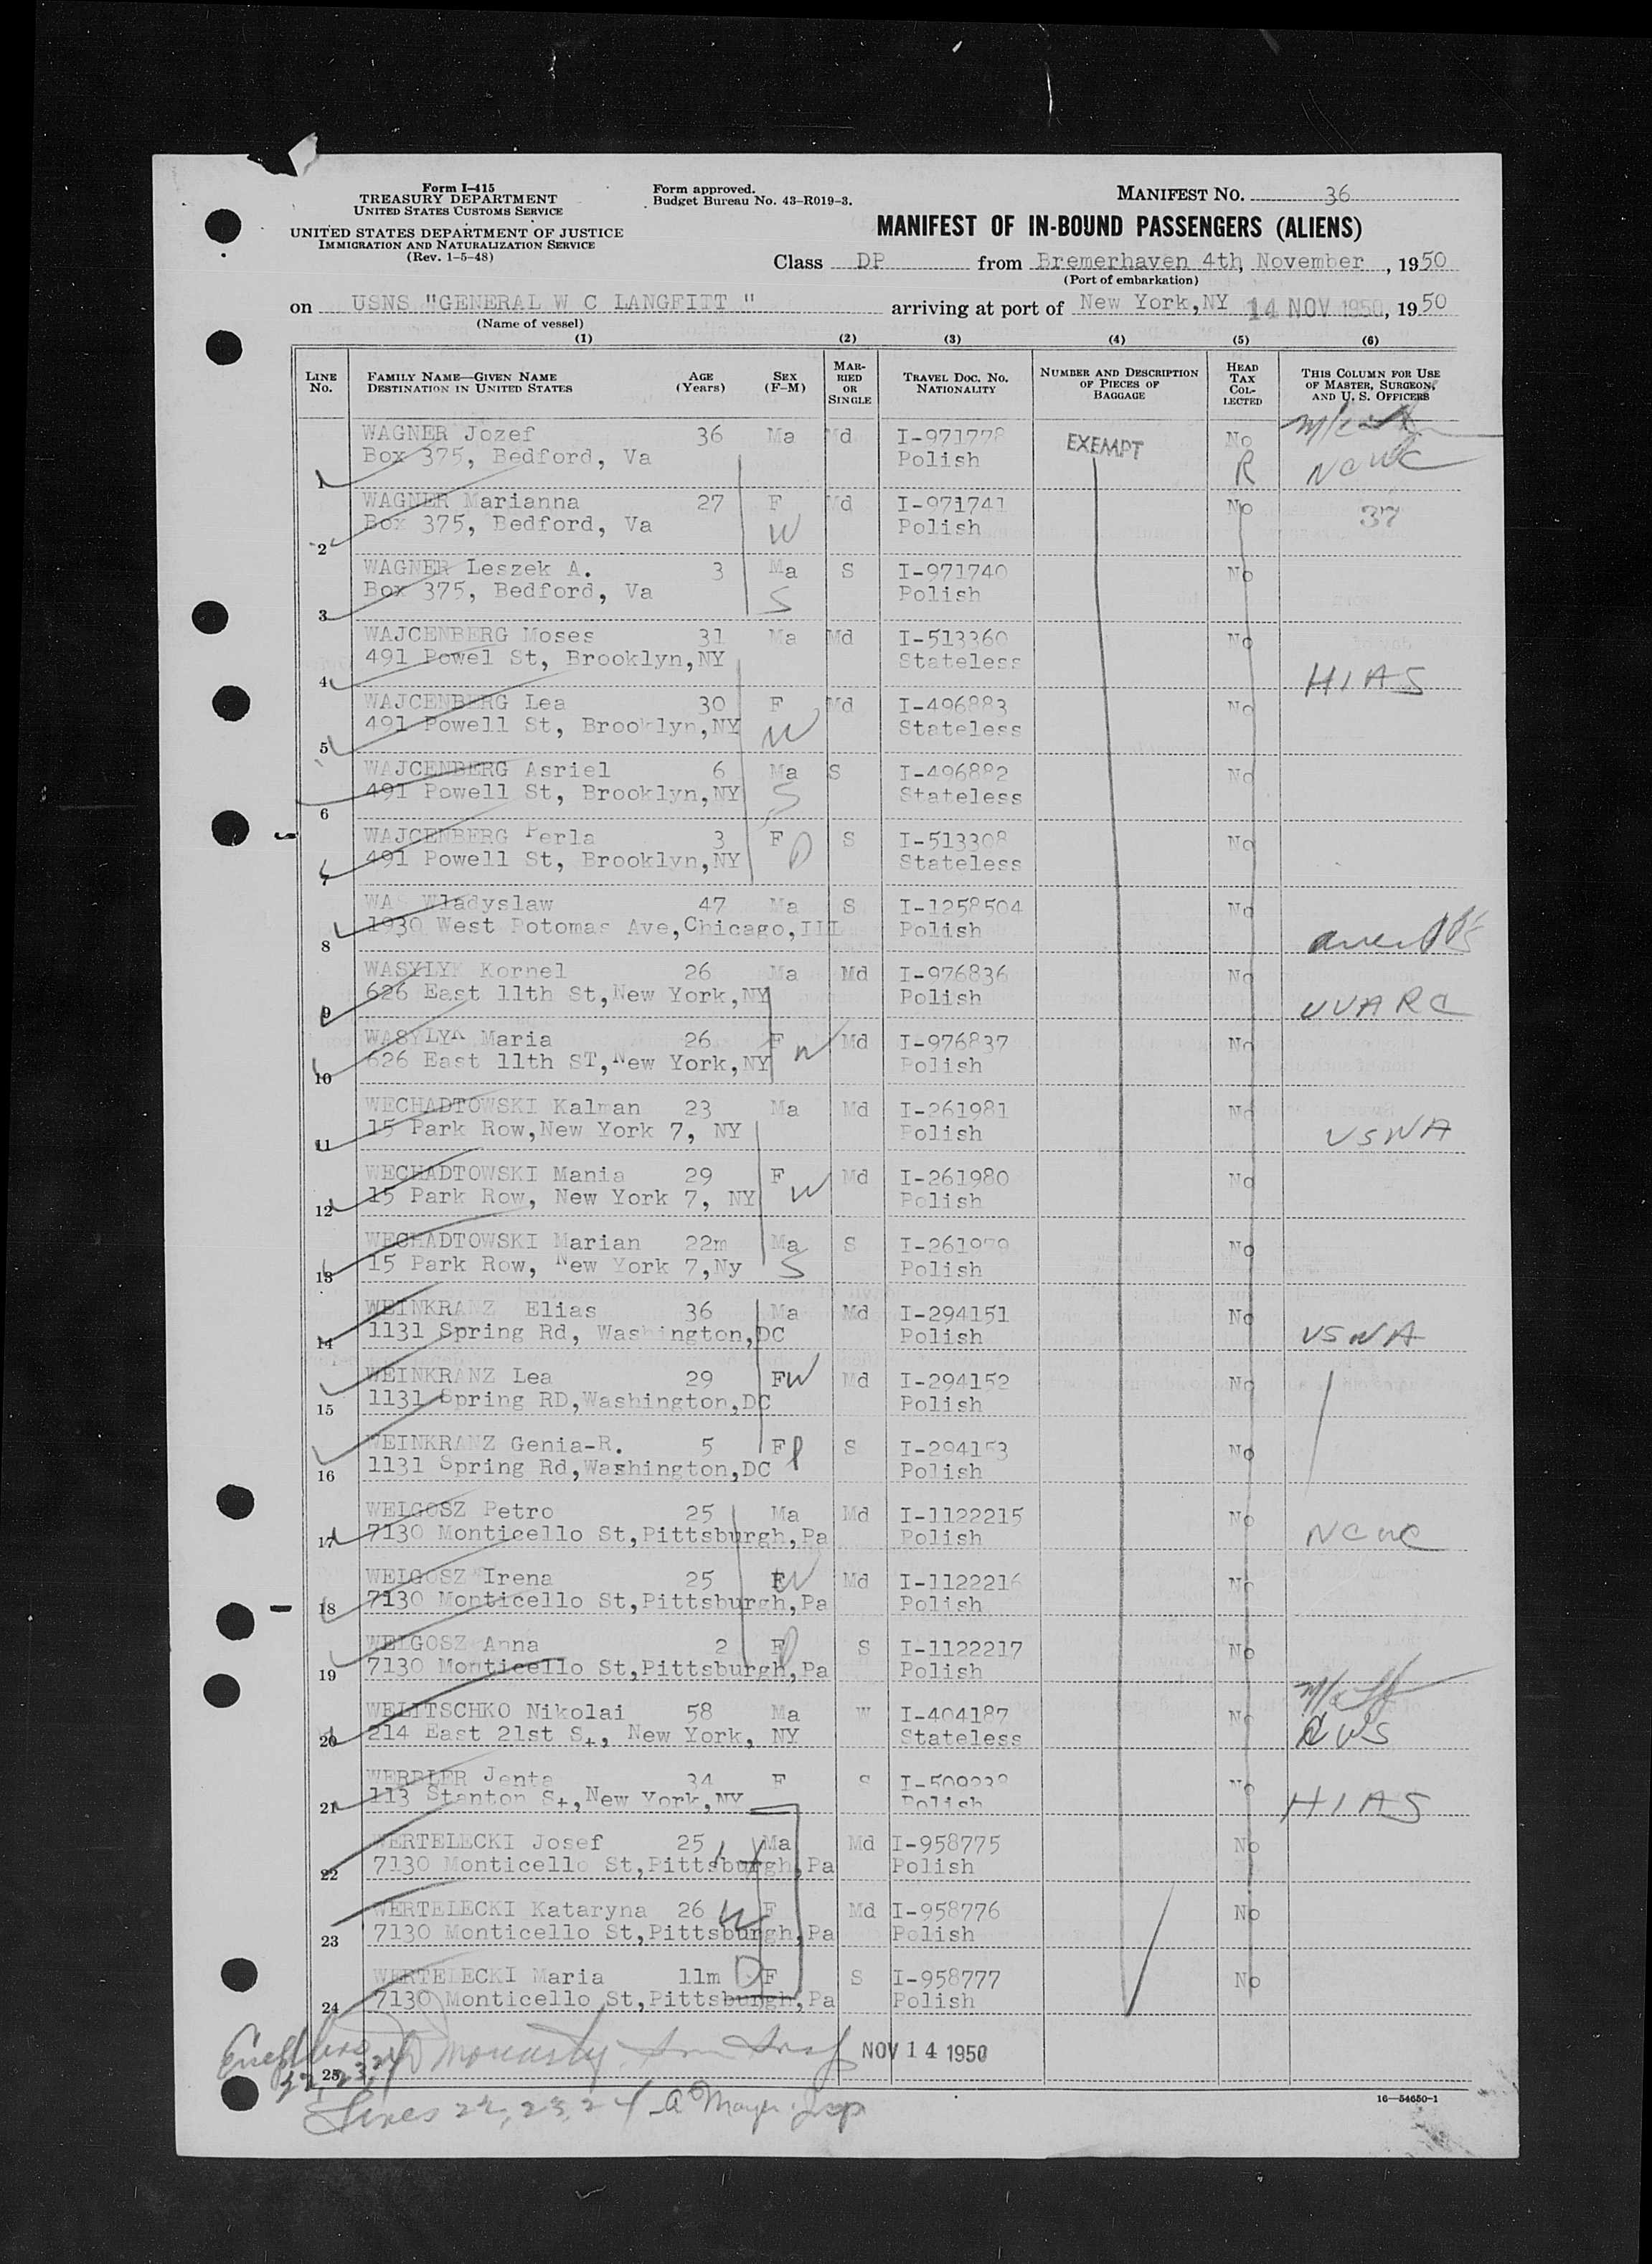 Form I-415
TREASURY DEPARTMENT
UNITED STATES CUSTOMS SERVICE
UNITED STATES DEPARTMENT OF JUSTICE
IMMIGRATION AND NATURALIZATION SERVICE
(Rev. 1-5-48)
Form approved.
Budget Bureau No. 43-R019-3.
MANIFEST NO. 36
MANIFEST OF IN-BOUND PASSENGERS (ALIENS)
Class DP from Bremerhaven 4th, November, 1950
(Port of embarkation)
on USNS "GENERAL W C LANGFITT " arriving at port of New York,NY 14 NOV 1950, 1950
(Name of vessel)
(1) (2) (3) (4) (5) (6)
LINE No. FAMILY NAME—GIVEN NAME DESTINATION IN UNITED STATES AGE (Years) SEX (F-M) MARRIED OR SINGLE TRAVEL DOC. NO. NATIONALITY NUMBER AND DESCRIPTION OF PIECES OF BAGGAGE HEAD TAX COLLECTED THIS COLUMN FOR USE OF MASTER, SURGEON, AND U. S. OFFICERS
WAGNER Jozef 36 Ma Md I-971778 EXEMPT No
1 Box 375, Bedford, Va Polish R NCWC
WAGNER Marianna 27 F Md I-971741 No 37
2 Box 375, Bedford, Va W Polish
WAGNER Leszek A. 3 Ma S I-971740 No
3 Box 375, Bedford, Va S Polish
WAJCENBERG Moses 31 Ma Md I-513360 No
4 491 Powel St, Brooklyn,NY Stateless HIAS
WAJCENBERG Lea 30 F Md I-496883 No
5 491 Powell St, Brooklyn,NY W Stateless
WAJCENBERG Asriel 6 Ma S I-496882 No
6 491 Powell St, Brooklyn,NY S Stateless
WAJCENBERG Perla 3 F D S I-513308 No
7 491 Powell St, Brooklyn,NY Stateless
WAS Wladyslaw 47 Ma S I-1258504 No
8 1930 West Potomas Ave,Chicago,Ill Polish
WASYLYK Kornel 26 Ma Md I-976836 No
9 626 East 11th St,New York,NY Polish UUARC
WASYLYK Maria 26 F W Md I-976837 No
10 626 East 11th ST,New York,NY Polish
WECHADTOWSKI Kalman 23 Ma Md I-261981 No
11 15 Park Row,New York 7, NY Polish USNA
WECHADTOWSKI Mania 29 F W Md I-261980 No
12 15 Park Row, New York 7, NY Polish
WECHADTOWSKI Marian 22m Ma S I-261979 No
13 15 Park Row, New York 7,Ny S Polish
WEINKRANZ Elias 36 Ma Md I-294151 No
14 1131 Spring Rd, Washington,DC Polish USNA
WEINKRANZ Lea 29 F W Md I-294152 No
15 1131 Spring RD,Washington,DC Polish
WEINKRANZ Genia-R. 5 F S I-294153 No
16 1131 Spring Rd,Washington,DC Polish
WELGOSZ Petro 25 Ma Md I-1122215 No
17 7130 Monticello St,Pittsburgh,Pa Polish NCWC
WELGOSZ Irena 25 F W Md I-1122216 No
18 7130 Monticello St,Pittsburgh,Pa Polish
WELGOSZ Anna 2 F D S I-1122217 No
19 7130 Monticello St,Pittsburgh,Pa Polish
WELITSCHKO Nikolai 58 Ma W I-404187 No
20 214 East 21st St, New York, NY Stateless CWS
Jenta 34 F S No
21 113 Stanton St,New York,NY Polish HIAS
WERTELECKI Josef 25 Ma Md I-958775 No
22 7130 Monticello St,Pittsburgh,Pa Polish
WERTELECKI Kataryna 26 W F Md I-958776 No
23 7130 Monticello St,Pittsburgh,Pa Polish
WERTELECKI Maria 11m D F S I-958777 No
24 7130 Monticello St,Pittsburgh,Pa Polish
NOV 14 1950
22, 23, 24
25
Lines 22, 23, 24
16-54650-1